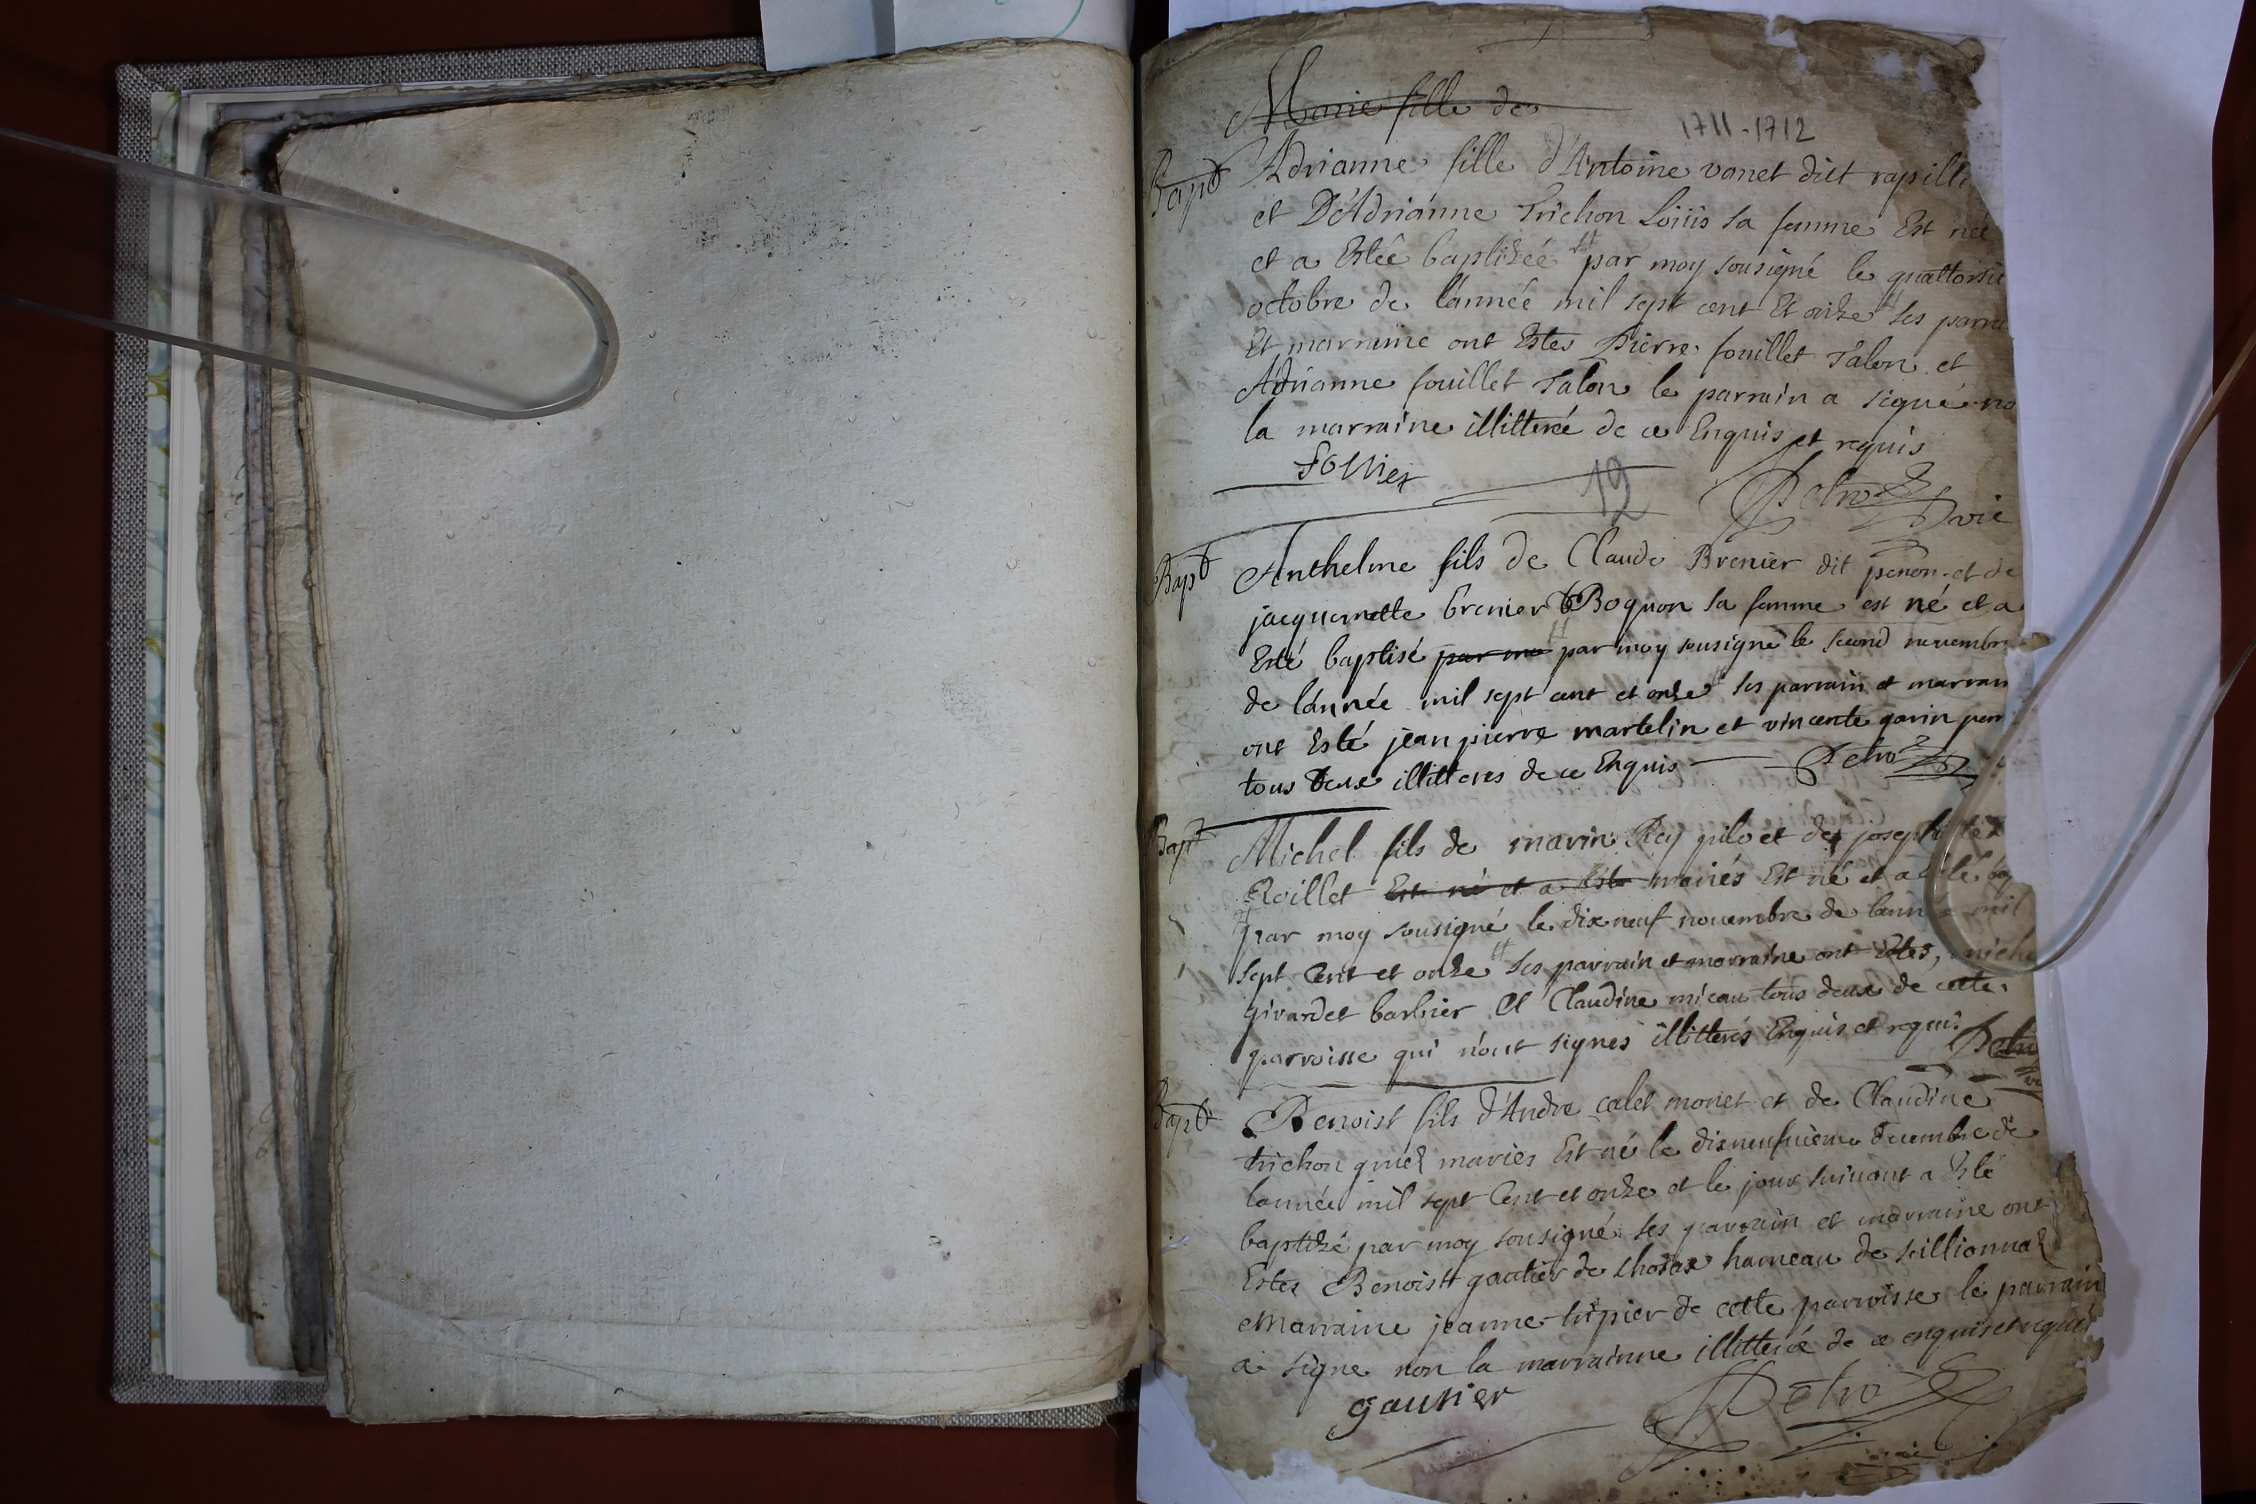 Marie fille de
1711-1712
Bapt Adrianne fille d'Antoine vanet dit rapill
et D'Adrianne Trichon Loüis sa femme Est née
et a Estée baptizéé par moy sousigné le quattorsie
octobre de l'année mil sept cent Et onze ses parra
Et marraine ont Estes Pierre fouillet Talon et
Adrianne fouillet Talon le parrain a signé no
la marraine illitteré de ce Enquis et requis
follliet
19
Petro
vic
Bapt Anthelme fils de Claude Brenier dit penon et de
jacquemette brenier Boquon sa femme est né et a
Esté baptisé par mo par moy sousigné le second novembre
de l'année mil sept cent et onze ses parrain et marrain
ont Esté jean pierre martelin et vincente garin
tous deux illitteres de ce Enquis Petro
Bapt Michel fils de marin Rey pilo et de joseph
Roillet Est né et a Esté mariés Est né et a esté bap
par moy sousigné le dixneuf novembre de lannée mil
sept Cent et onze ses parrain et marraine ont Estes, miche
girardet barbier et Claudine micau tous deux de cette
parroisse qui n'ont signés illitterés Enquis et requis Petro
Bapt Benoist fils d'Andre calet monet et de Claudine
trichon mariés Est né le dixneufvieme decembre de
lannée mil sept Cent et onze et le jour suivant a Esté
baptizé par moy sousigné ses parrain et marraine ont
Estes Benoist gautier de hameau de seillionnaz
Marraine jeanne de cette parroisse le parrain
a signe non la marrainne illitteré de ce enquis et requis
gautier
Petro
vic